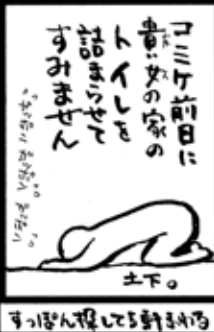 コミケ前日に
貴女の家の
トイレを
詰まらせて
すみません
土下。
すっぽん探して5軒まわる